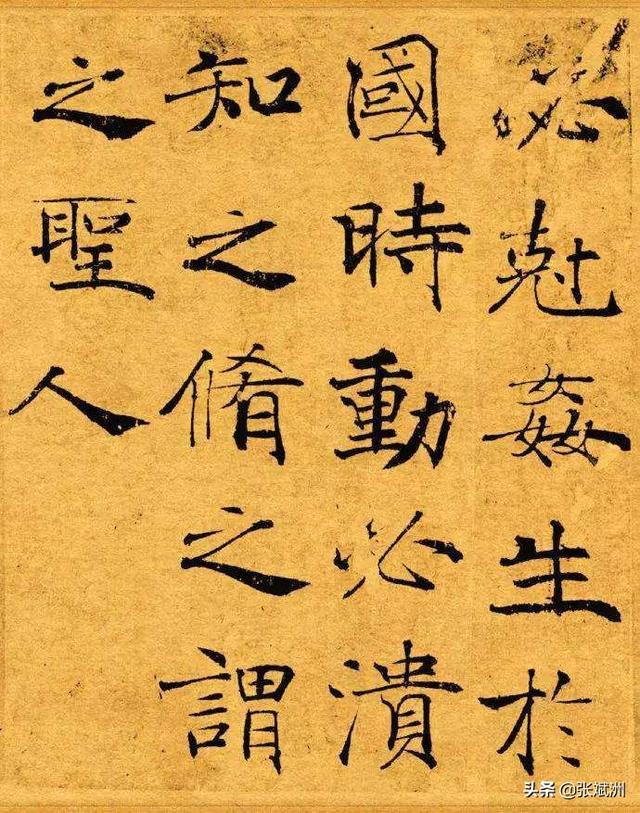 必尅姦生於
國時動必潰
知之脩之謂
之聖人
头条 @张斌洲